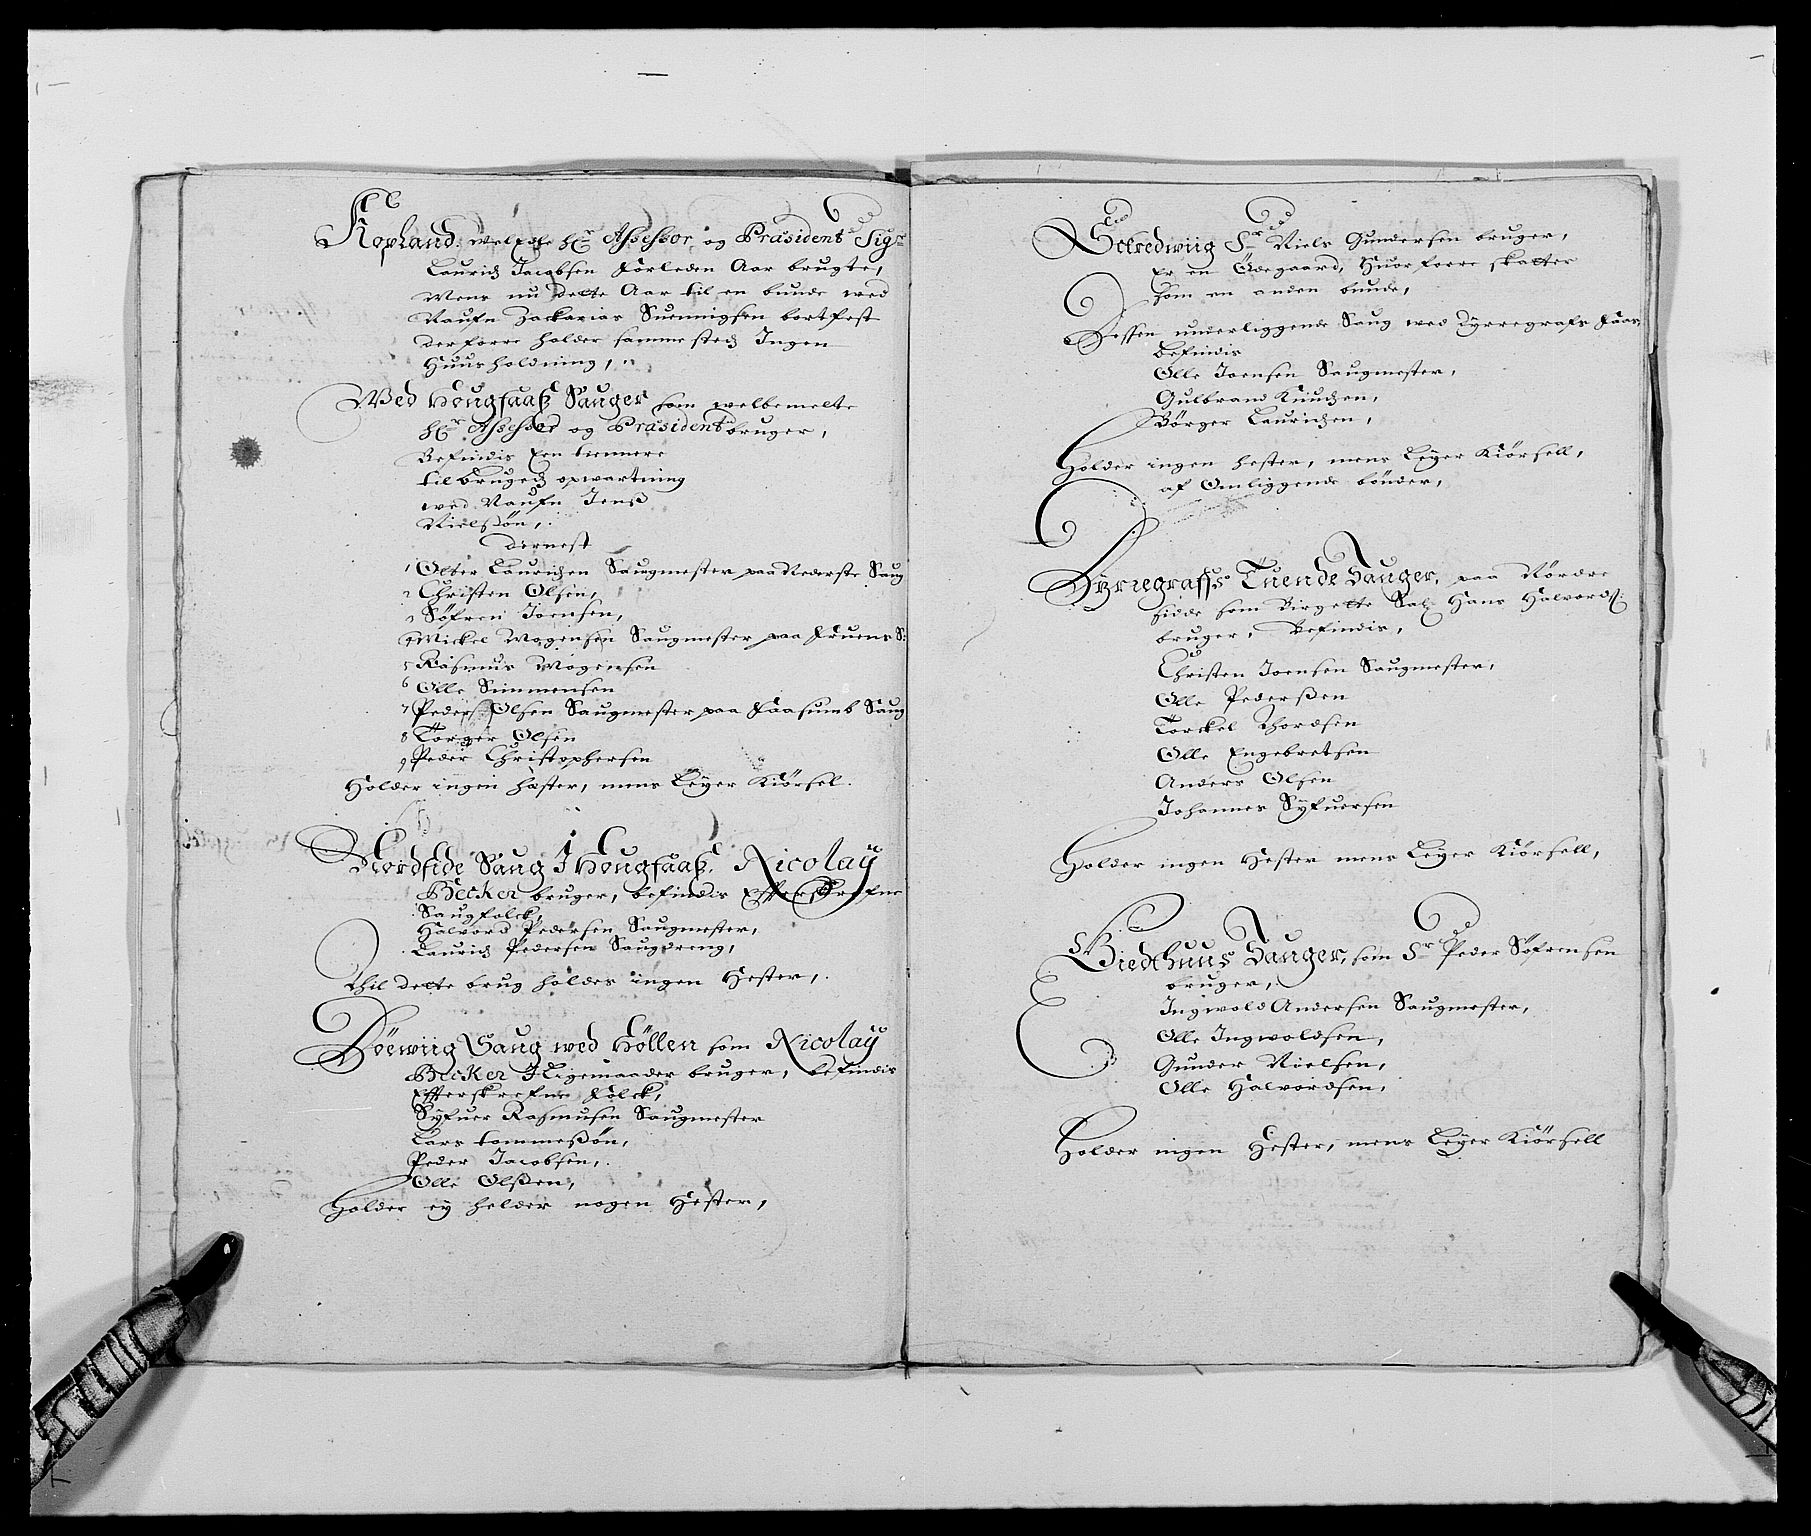 Kopland, welEdle H:r Assessor og Præsident Sig:r
Laurids Jacobsen forleden Aar brugte,
Mens nu dette Aar til en bunde wed
Naufn Zackarias Suenningsen bortfest
derforre holder sammesteds Ingen
Huusholdning,
Wed Hougfaaß Sauger som welbemelte
H:r Assessor og Præsident bruger,
Befindis Een tiennere
til brugeds opwartning
wed Naufn Jenß
Nielßøn,
dernest
1 Olter Lauridsen Saugmester paa Nederste Saug
2 Christen Olsen,
3 Søfren Joensen,
4 Mickel Mogensen Saugmester paa Fruens S:
5 Rasmus Mogensen
6 Olle Simmensen
7 Peder Olsen Saugmester paa Faasumb Saug
8 Torger Olsen
9 Peder Christophersen
Holder ingen hæster, mens Leyer Kiørsel.
Nordside Saug I Hougfaaß, Nicolaÿ
Becker bruger, befindis Effterskrefne
Saugfolck,
Halvord Pedersen Saugmester,
Laurids Pedersen Saugdreng,
Thil dette brug holdes ingen Hester,
Döewiig Saug wed Höllen som Nicolaÿ
Becker I Ligemaader bruger, befindis
Effterskrefne Folck,
Syfuer Rasmusen Saugmester
Lars tommeßøn,
Peder Jacobsen,
Olle Olßen,
Holder eÿ heller nogen Hester,
Sr Niels Gundersen bruger,
Er en Ödegaard, Huorforre skatter
som en anden bunde,
Dessen underliggende Saug wed Dyrregrafs Faas
befindis
Olle Joensen Saugmester,
Gulbrand Knudsen,
Børger Lauridsen,
Holder ingen hester, mens Leÿer Kiörsell,
af Omliggende bönder,
Dyrregraffs Tuende Sauger, paa Nordre
siide som Birgette Sal: Hans Halvords:
bruger, Befindis,
Christen Joensen Saugmester,
Olle Pederßen
Torckel Thordsen
Olle Engebretsen
Anders Olsen
Johannes Syfuersen
Holder ingen Hester mens Leÿer Kiörsell,
Biedthuus Sauger, som Sr Peder Söfrensen
bruger,
Ingwold Andersen Saugmester,
Olle Ingwoldsen,
Gunder Nielsen,
Olle Halvordsen,
Holder ingen Hester, mens Leÿer Kiörsell